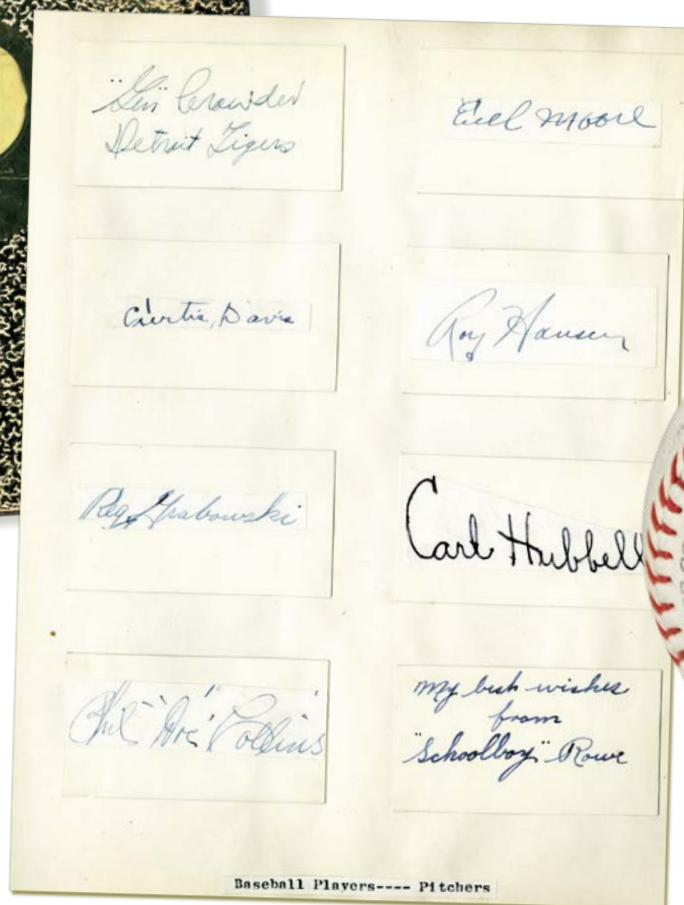 "Gen" Crowder
Detroit Tigers
Curtis Davis
Reg Grabowski
Phil "Doc" Collins
Euel Moore
Roy Hansen
Carl Hubbell
My best wishes
from
"Schoolboy" Rowe
Baseball Players---- Pitchers